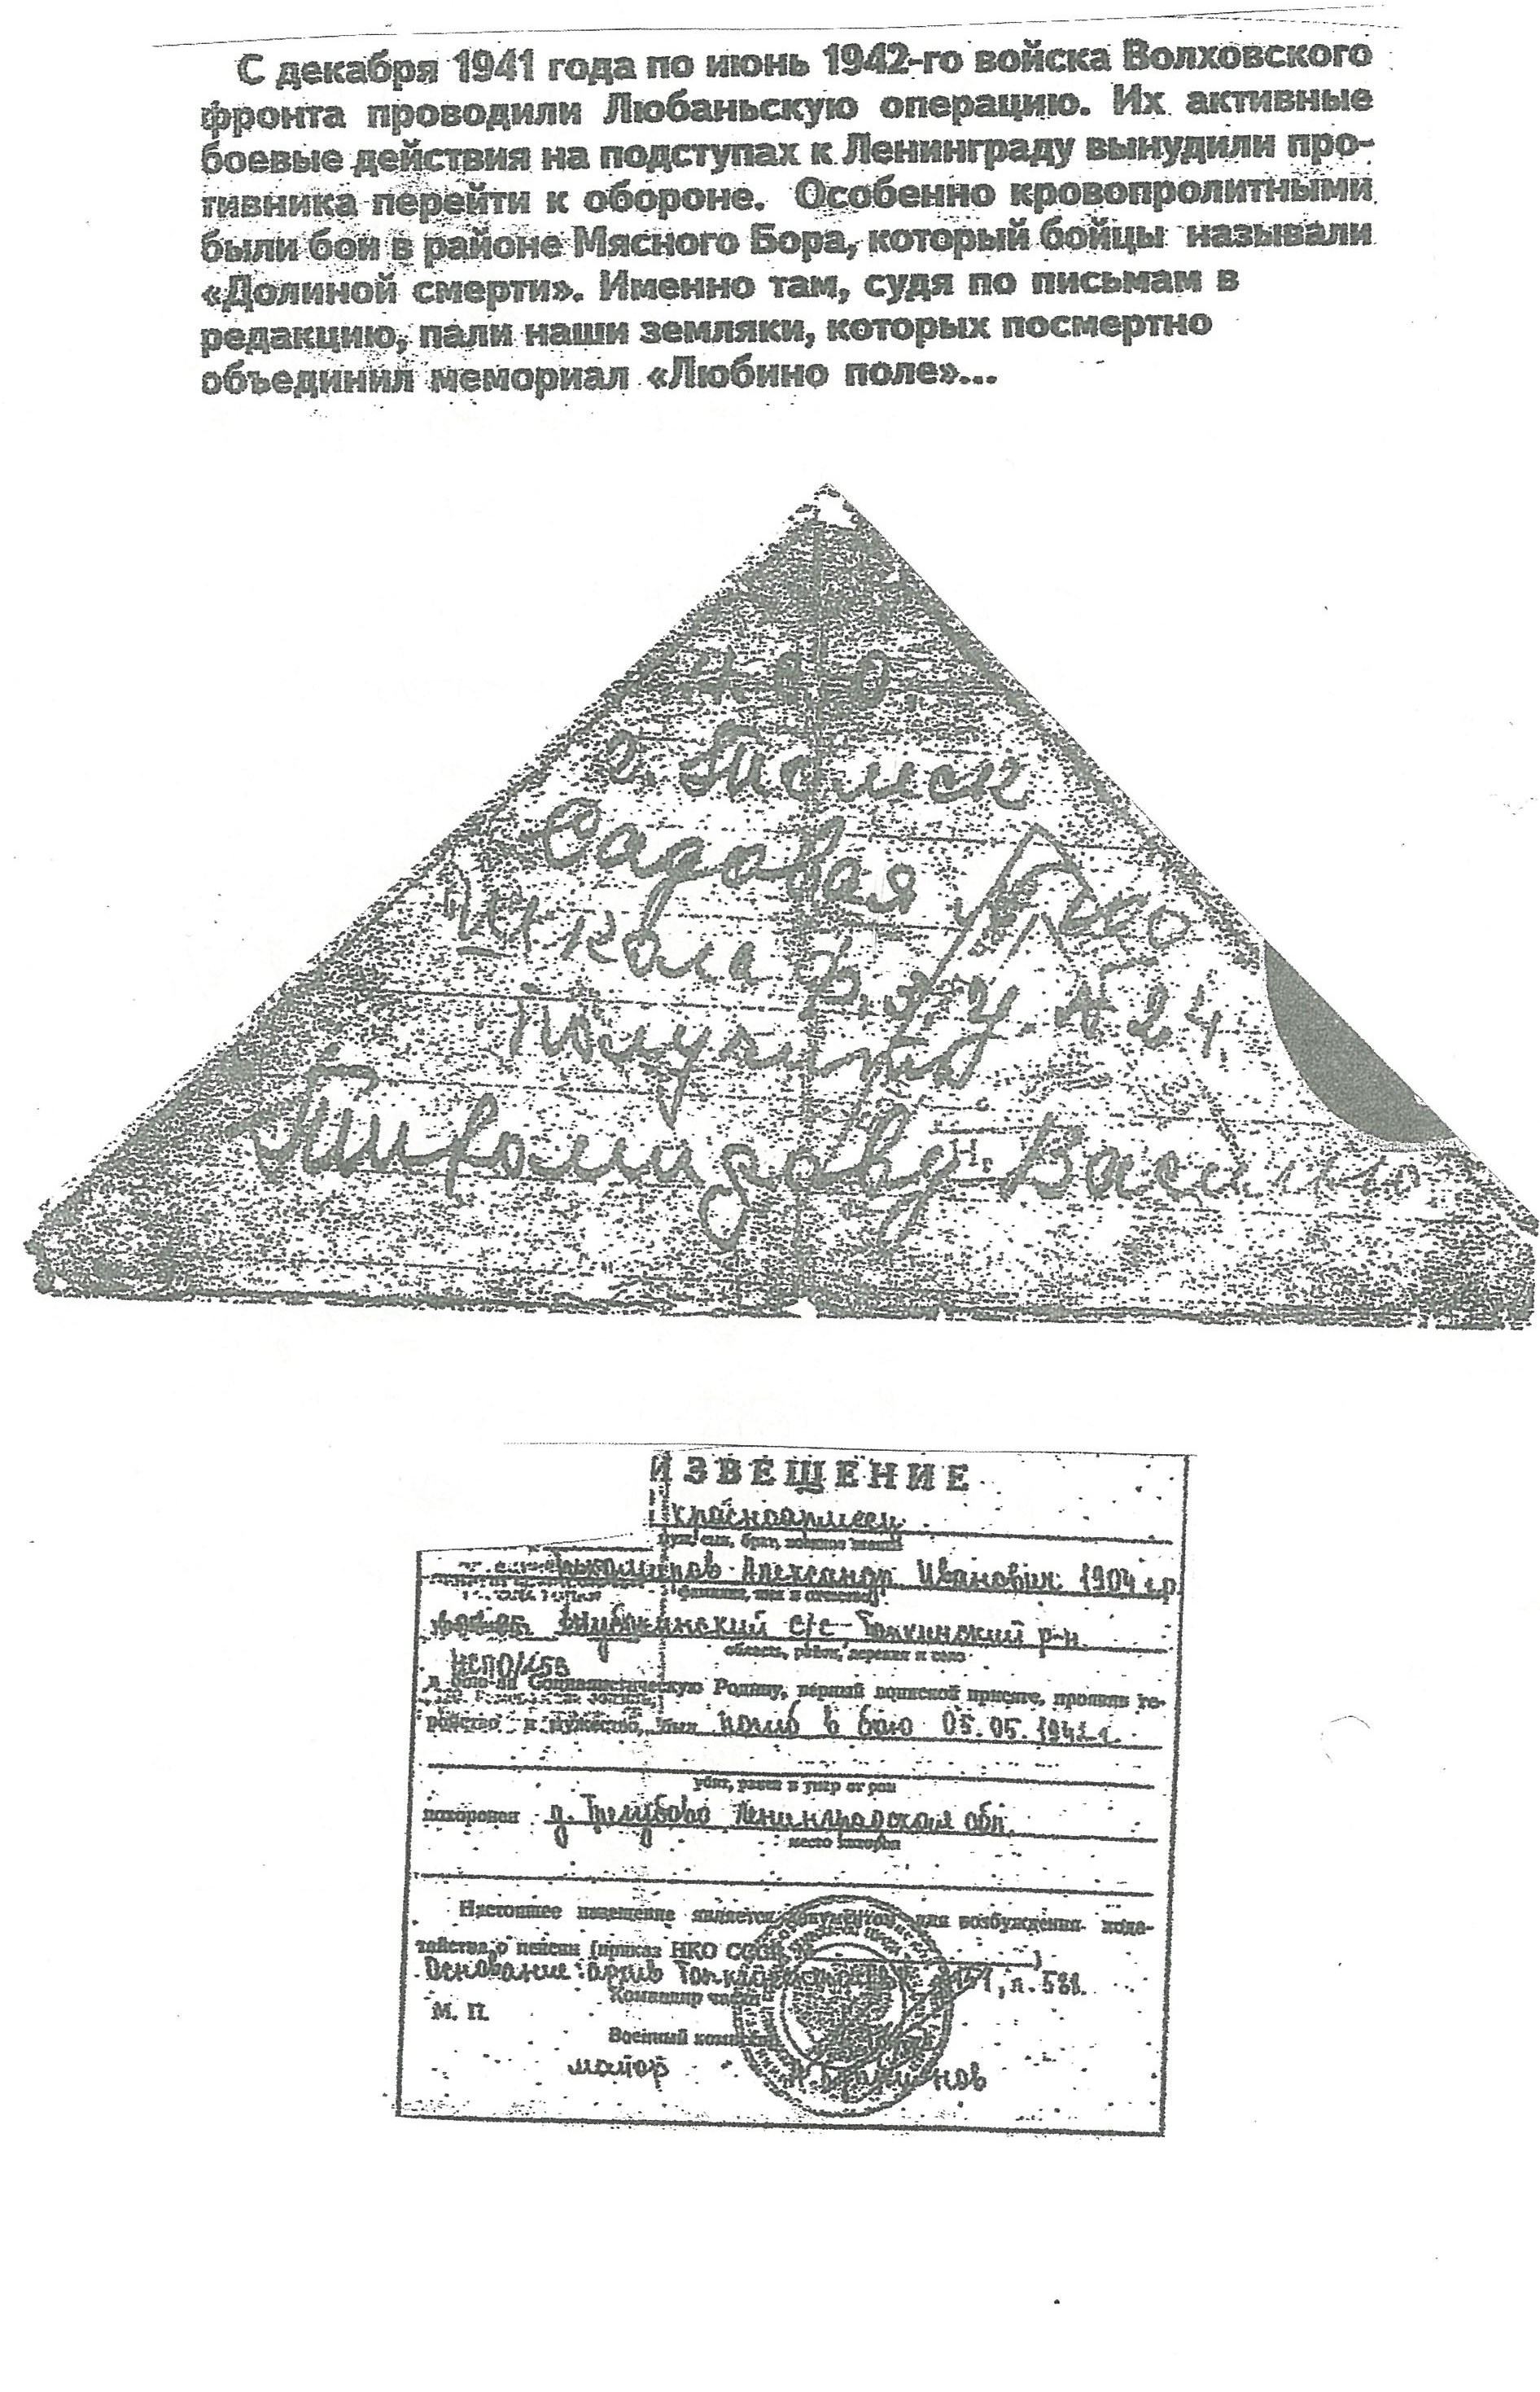 С декабря 1941 года по июнь 1942-го войска Волховского
фронта проводили Любаньскую операцию. Их активные
боевые действия на подступах к Ленинграду вынудили про-
тивника перейти к обороне. Особенно кровопролитными
были бои в районе Мясного Бора, который бойцы называли
«Долиной смерти». Именно там, судя по письмам в
редакцию, пали наши земляки, которых посмертно
объединил мемориал «Любино поле»...
Н с о.
Садовая
Школа ф.з.у. № 24
Получить
Н. Василию
ИЗВЕЩЕНИЕ
красноармеец
муж, сын, брат, военное звание
Александр Иванович 1904 г.р.
фамилия, имя и отчество
с/с р-н
область, район, деревня и село
в бою за Социалистическую Родину, верный воинской присяге, проявив ге-
ройство и мужество, был погиб в бою 05.05.1942 г.
убит, ранен и умер от ран
похоронен д. Трегубово Ленинградская обл.
место похорон
Настоящее извещение является документом для возбуждения хода-
тайства о пенсии (приказ НКО СССР №
Основание: архив л. 581.
Командир части
М. П.
Военный комиссар
майор